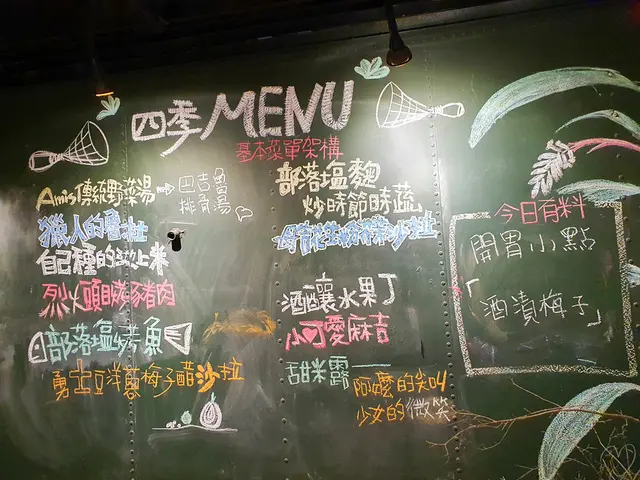 四季MENU
基本菜單架構
Amis傳統野菜湯
田吉魯
排骨湯
獵人的
自己種的 上米
烈火頭目烤豬肉
部落塩烤魚
勇士豆洋蔥梅子醋沙拉
部落塩麴
炒時節時蔬
沙拉
酒釀水果丁
小可愛麻吉
甜米露
阿嬤的尖叫
少女的微笑
今日有料
開胃小點
「酒漬梅子」